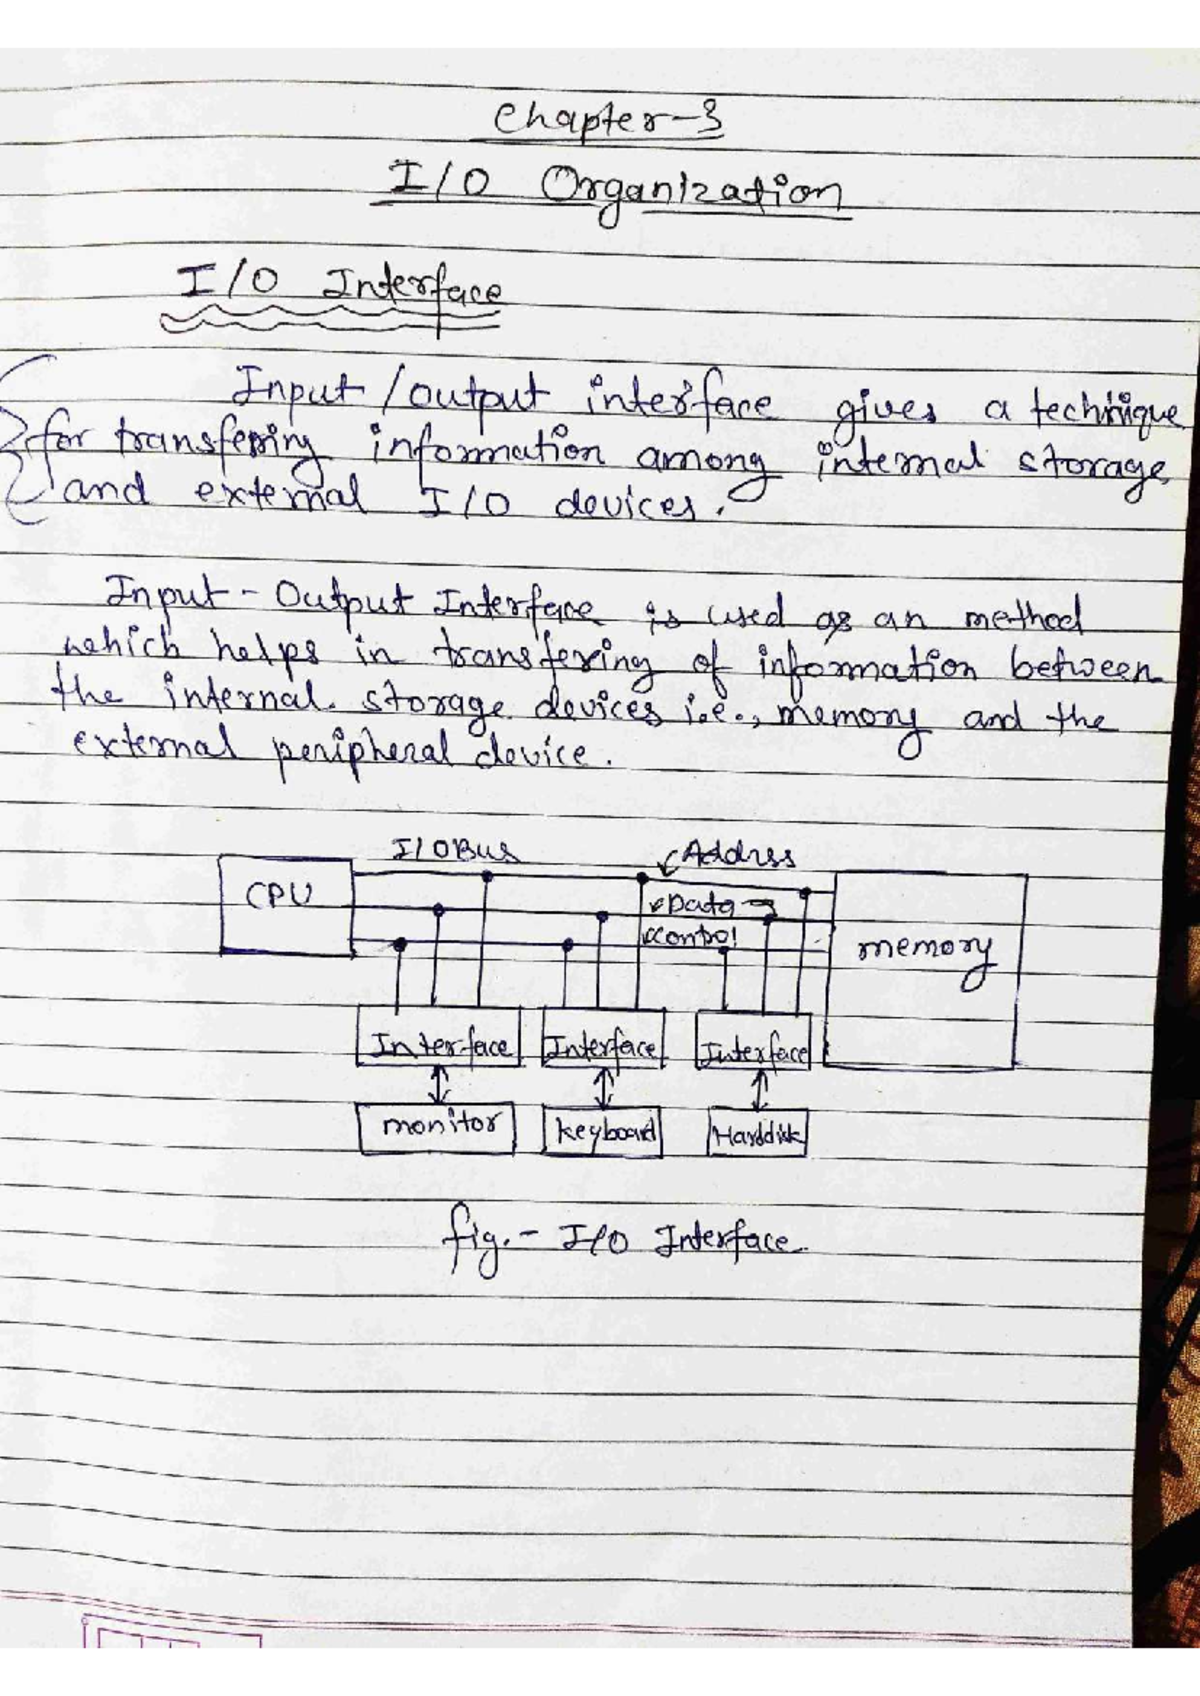 Chapter-3
I/O Organization
I/O Interface
Input/output interface gives a technique
for transferring information among internal storage
and external I/O devices.
Input-Output Interface is used as an method
which helps in transfering of information between
the internal storage devices i.e., memory and the
external peripheral device.
I/O Bus
Address
CPU
Data
Control
memory
Interface Interface Interface
monitor keyboard Harddisk
fig.- I/O Interface